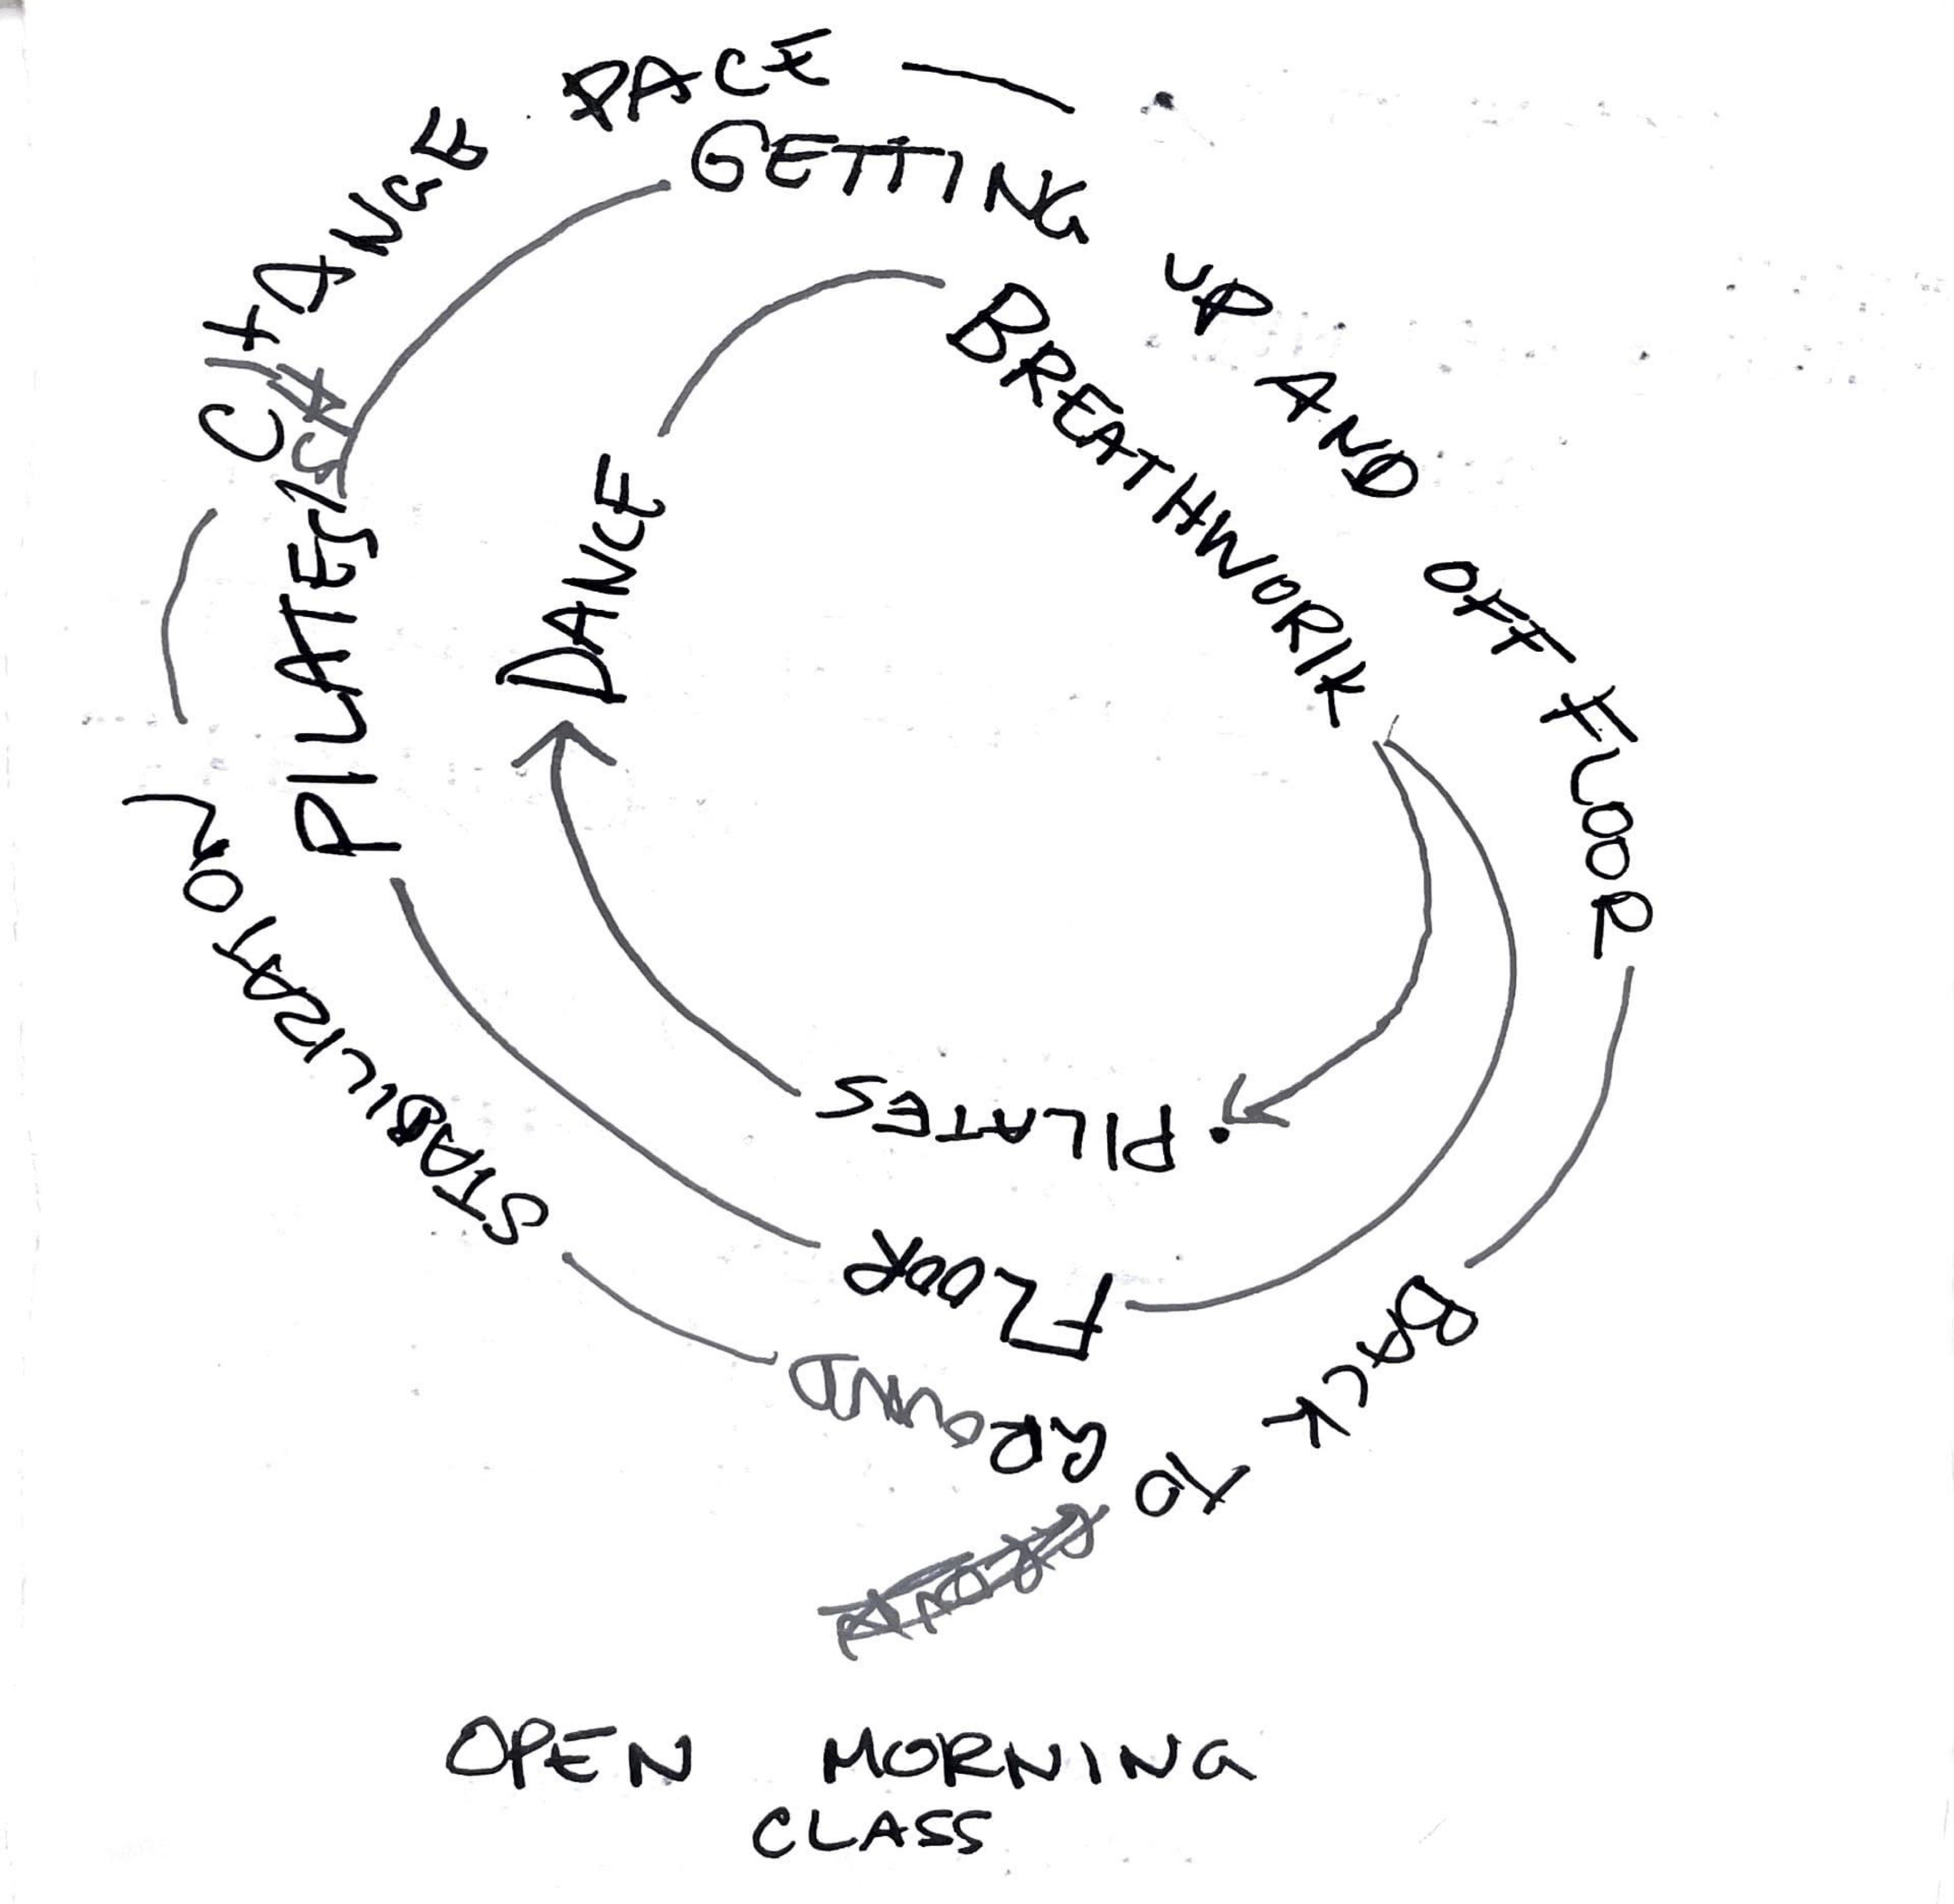 CHANGE PACE
GETTING UP AND OFF FLOOR
BACK TO GROUND
STABILIZATION
BREATHWORK
FLOOR
PILATES
PILATES
DANCE
OPEN MORNING
CLASS